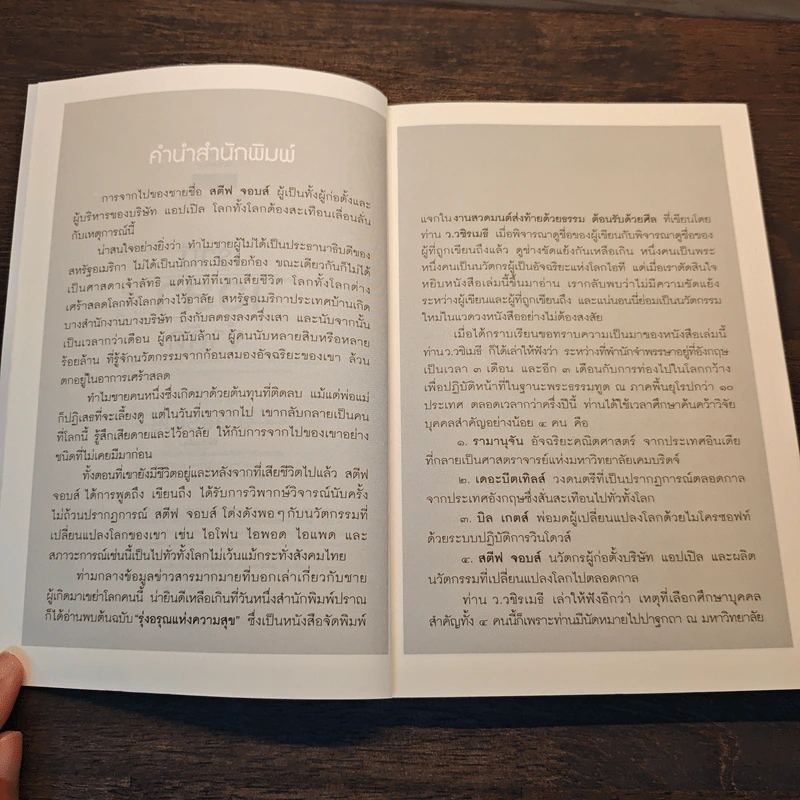 คำนำสำนักพิมพ์
การจากไปของชายชื่อ สตีฟ จอบส์ ผู้เป็นทั้งผู้ก่อตั้งและ
ผู้บริหารของบริษัท แอปเปิล โลกทั้งโลกต้องสะเทือนเลื่อนลั่น
กับเหตุการณ์นี้
น่าสนใจอย่างยิ่งว่า ทำไมชายผู้ไม่ได้เป็นประธานาธิบดีของ
สหรัฐอเมริกา ไม่ได้เป็นนักการเมืองชื่อก้อง ขณะเดียวกันก็ไม่ได้
เป็นศาสดาเจ้าลัทธิ แต่ทันทีที่เขาเสียชีวิต โลกทั้งโลกต่าง
เศร้าสลดโลกทั้งโลกต่างไว้อาลัย สหรัฐอเมริกาประเทศบ้านเกิด
บางสำนักงานบางบริษัท ถึงกับลดธงลงครึ่งเสา และนับจากนั้น
เป็นเวลากว่าเดือน ผู้คนนับล้าน ผู้คนนับหลายสิบหรือหลาย
ร้อยล้าน ที่รู้จักนวัตกรรมจากก้อนสมองอัจฉริยะของเขา ล้วน
ตกอยู่ในอาการเศร้าสลด
ทำไมชายคนหนึ่งซึ่งเกิดมาด้วยต้นทุนที่ติดลบ แม้แต่พ่อแม่
ก็ปฏิเสธที่จะเลี้ยงดู แต่ในวันที่เขาจากไป เขากลับกลายเป็นคน
ที่โลกนี้ รู้สึกเสียดายและไว้อาลัย ให้กับการจากไปของเขาอย่าง
ชนิดที่ไม่เคยมีมาก่อน
ทั้งตอนที่เขายังมีชีวิตอยู่และหลังจากที่เสียชีวิตไปแล้ว สตีฟ
จอบส์ ได้การพูดถึง เขียนถึง ได้รับการวิพากษ์วิจารณ์นับครั้ง
ไม่ถ้วนปรากฏการณ์ สตีฟ จอบส์ โด่งดังพอๆกับนวัตกรรมที่
เปลี่ยนแปลงโลกของเขา เช่น ไอโฟน ไอพอด ไอแพด และ
สภาวะการณ์เช่นนี้เป็นไปทั่วทั้งโลกไม่เว้นแม้กระทั่งสังคมไทย
ท่ามกลางข้อมูลข่าวสารมากมายที่บอกเล่าเกี่ยวกับชาย
ผู้เกิดมาเขย่าโลกคนนี้ น่ายินดีเหลือเกินที่วันหนึ่งสำนักพิมพ์ปราณ
ก็ได้อ่านพบต้นฉบับ "รุ่งอรุณแห่งความสุข" ซึ่งเป็นหนังสือจัดพิมพ์
แจกในงานสวดมนต์ส่งท้ายด้วยธรรม ต้อนรับด้วยศีล ที่เขียนโดย
ท่าน ว.วชิรเมธี เมื่อพิจารณาดูชื่อของผู้เขียนกับพิจารณาดูชื่อของ
ผู้ที่ถูกเขียนถึงแล้ว ดูช่างขัดแย้งกันเหลือเกิน หนึ่งคนเป็นพระ
หนึ่งคนเป็นนวัตกรผู้เป็นอัจฉริยะแห่งโลกไอที แต่เมื่อเราตัดสินใจ
หยิบหนังสือเล่มนี้ขึ้นมาอ่าน เรากลับพบว่าไม่มีความขัดแย้ง
ระหว่างผู้เขียนและผู้ที่ถูกเขียนถึง และแน่นอนนี่ย่อมเป็นนวัตกรรม
ใหม่ในแวดวงหนังสืออย่างไม่ต้องสงสัย
เมื่อได้กราบเรียนขอทราบความเป็นมาของหนังสือเล่มนี้
ท่านว.วชิเมธี ก็ได้เล่าให้ฟังว่า ระหว่างที่พำนักจำพรรษาอยู่ที่อังกฤษ
เป็นเวลา ๓ เดือน และอีก ๓ เดือนกับการท่องไปในโลกกว้าง
เพื่อปฏิบัติหน้าที่ในฐานะพระธรรมทูต ณ ภาคพื้นยุโรปกว่า ๑๐
ประเทศ ตลอดเวลากว่าครึ่งปีนี้ ท่านได้ใช้เวลาศึกษาค้นคว้าวิจัย
บุคคลสำคัญอย่างน้อย ๔ คน คือ
๑. รามานุจัน อัจฉริยะคณิตศาสตร์ จากประเทศอินเดีย
ที่กลายเป็นศาสตราจารย์แห่งมหาวิทยาลัยเคมบริดจ์
๒. เดอะบีตเทิลส์ วงดนตรีที่เป็นปรากฏการณ์ตลอดกาล
จากประเทศอังกฤษซึ่งสั่นสะเทือนไปทั่วทั้งโลก
๓. บิล เกตส์ พ่อมดผู้เปลี่ยนแปลงโลกด้วยไมโครซอฟท์
ด้วยระบบปฏิบัติการวินโดวส์
๔. สตีฟ จอบส์ นวัตกรผู้ก่อตั้งบริษัท แอปเปิล และผลิต
นวัตกรรมที่เปลี่ยนแปลงโลกไปตลอดกาล
ท่าน ว.วชิรเมธี เล่าให้ฟังอีกว่า เหตุที่เลือกศึกษาบุคคล
สำคัญทั้ง ๔ คนนี้ก็เพราะท่านมีนัดหมายไปปาฐกถา ณ มหาวิทยาลัย